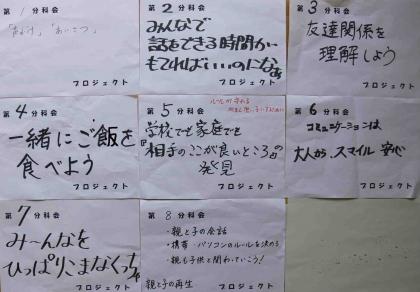 第1分科会
「あいさつ」
プロジェクト
第2分科会
みんなで
話をできる時間が
もてればいいのになぁ
プロジェクト
第3分科会
友達関係を
理解しよう
プロジェクト
第4分科会
一緒にご飯を
食べよう
プロジェクト
第5分科会
ルールが守れる
学校でも家庭でも
相手のここが良いところの
発見
プロジェクト
第6分科会
コミュニケーションは
大人から、スマイル 安心
プロジェクト
第7分科会
み〜んなを
ひっぱりこまなくっちゃ
プロジェクト
第8分科会
・親と子の会話
・携帯・パソコンのルールを決める
・親も子供と関わっていこう!
親と子の再生
プロジェクト